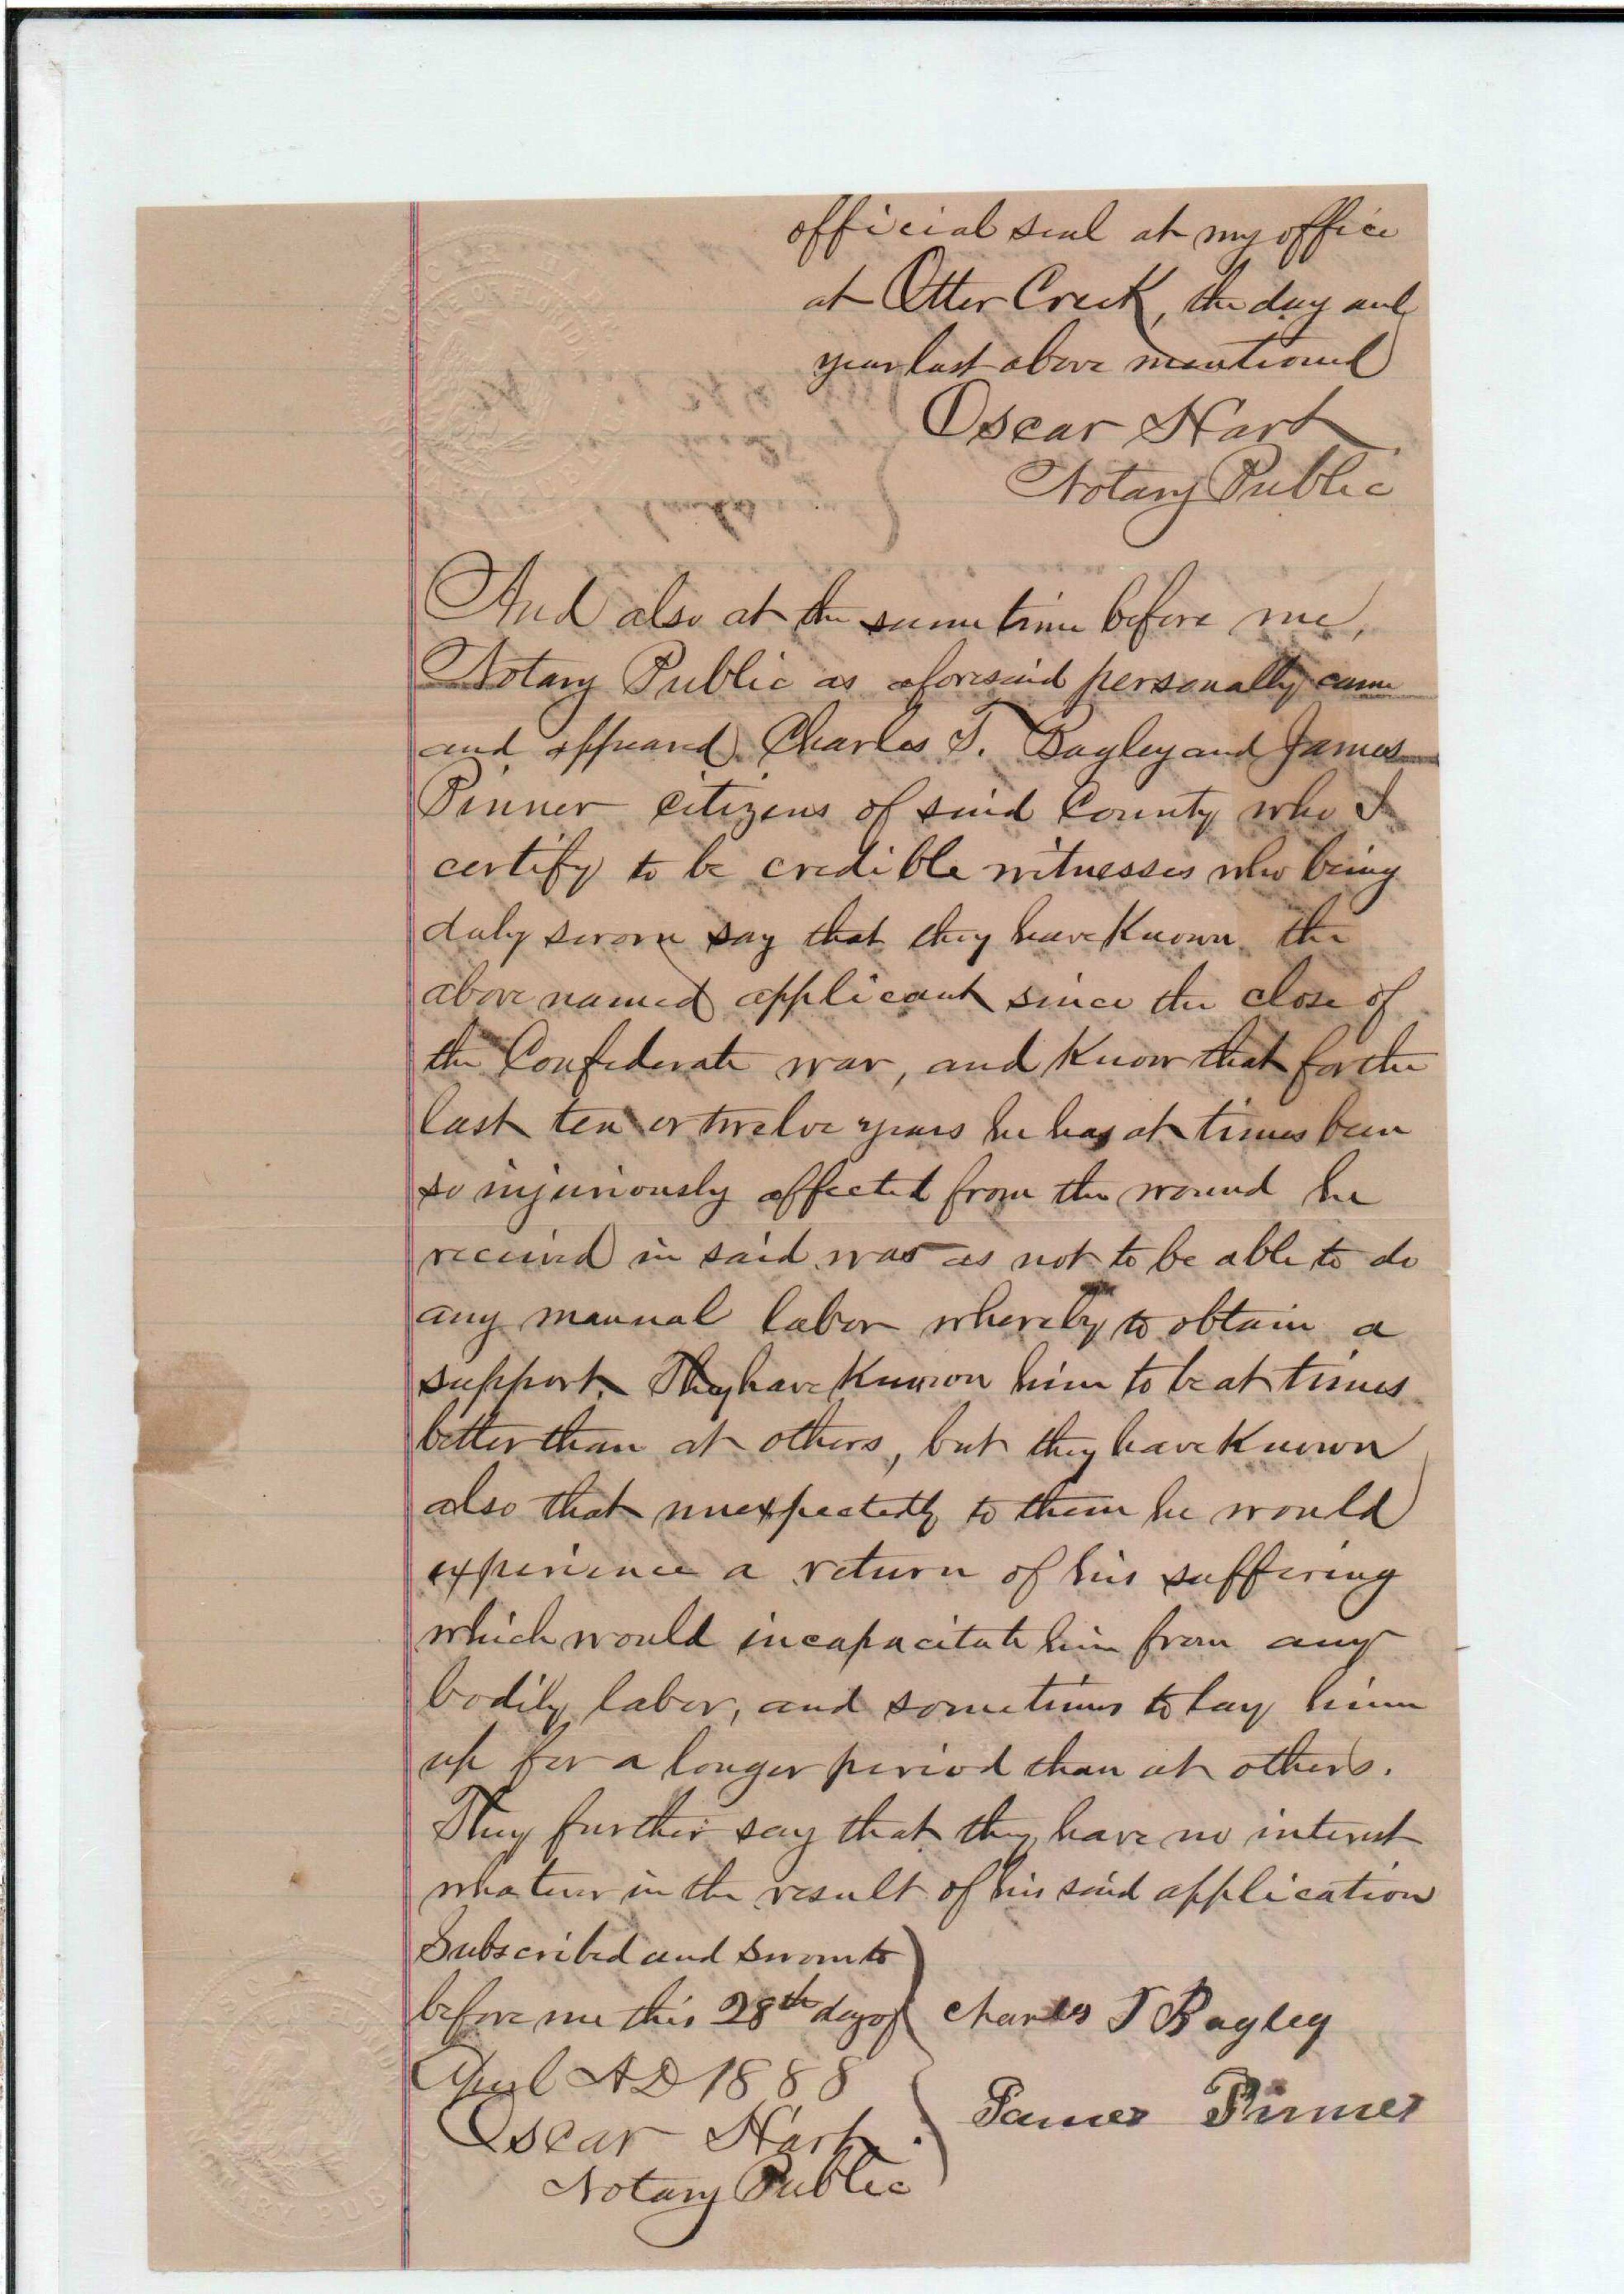 official seal at my office
at Otter Creek, the day and
year last above mentioned
Oscar Hart
Notary Public
And also at the same time before me,
Notary Public as aforesaid personally came
and appeard Charles T. Bagley and James
Pinner citizens of said County who I
certify to be credible witnesses who being
duly sworn say that they have Known the
above named applicant since the close of
the Confederate war, and Know that for the
last ten or twelve years he has at times been
so injuriously affected from the wound he
received in said war as not to be able to do
any manual labor whereby to obtain a
support. They have Known him to be at times
better than at others, but they have Known
also that unexpectedly to them he would
experience a return of his suffering
which would incapacitate him from any
bodily labor, and sometimes to lay him
up for a longer period than at others.
They further say that they have no interest
whatever in the result of his said application
Subscribed and sworn to
before me this 28th day of
April AD 1888
Oscar Hart
Notary Public
Charles T Bagley
James Pinner